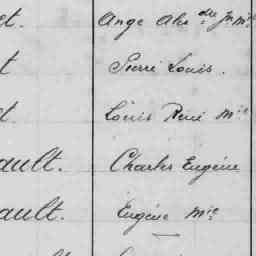 et. Ange Alex dre Jn Mie
t Pierre Louis.
d Louis René Mie
ault. Charles Eugène
ault. Eugène Mie